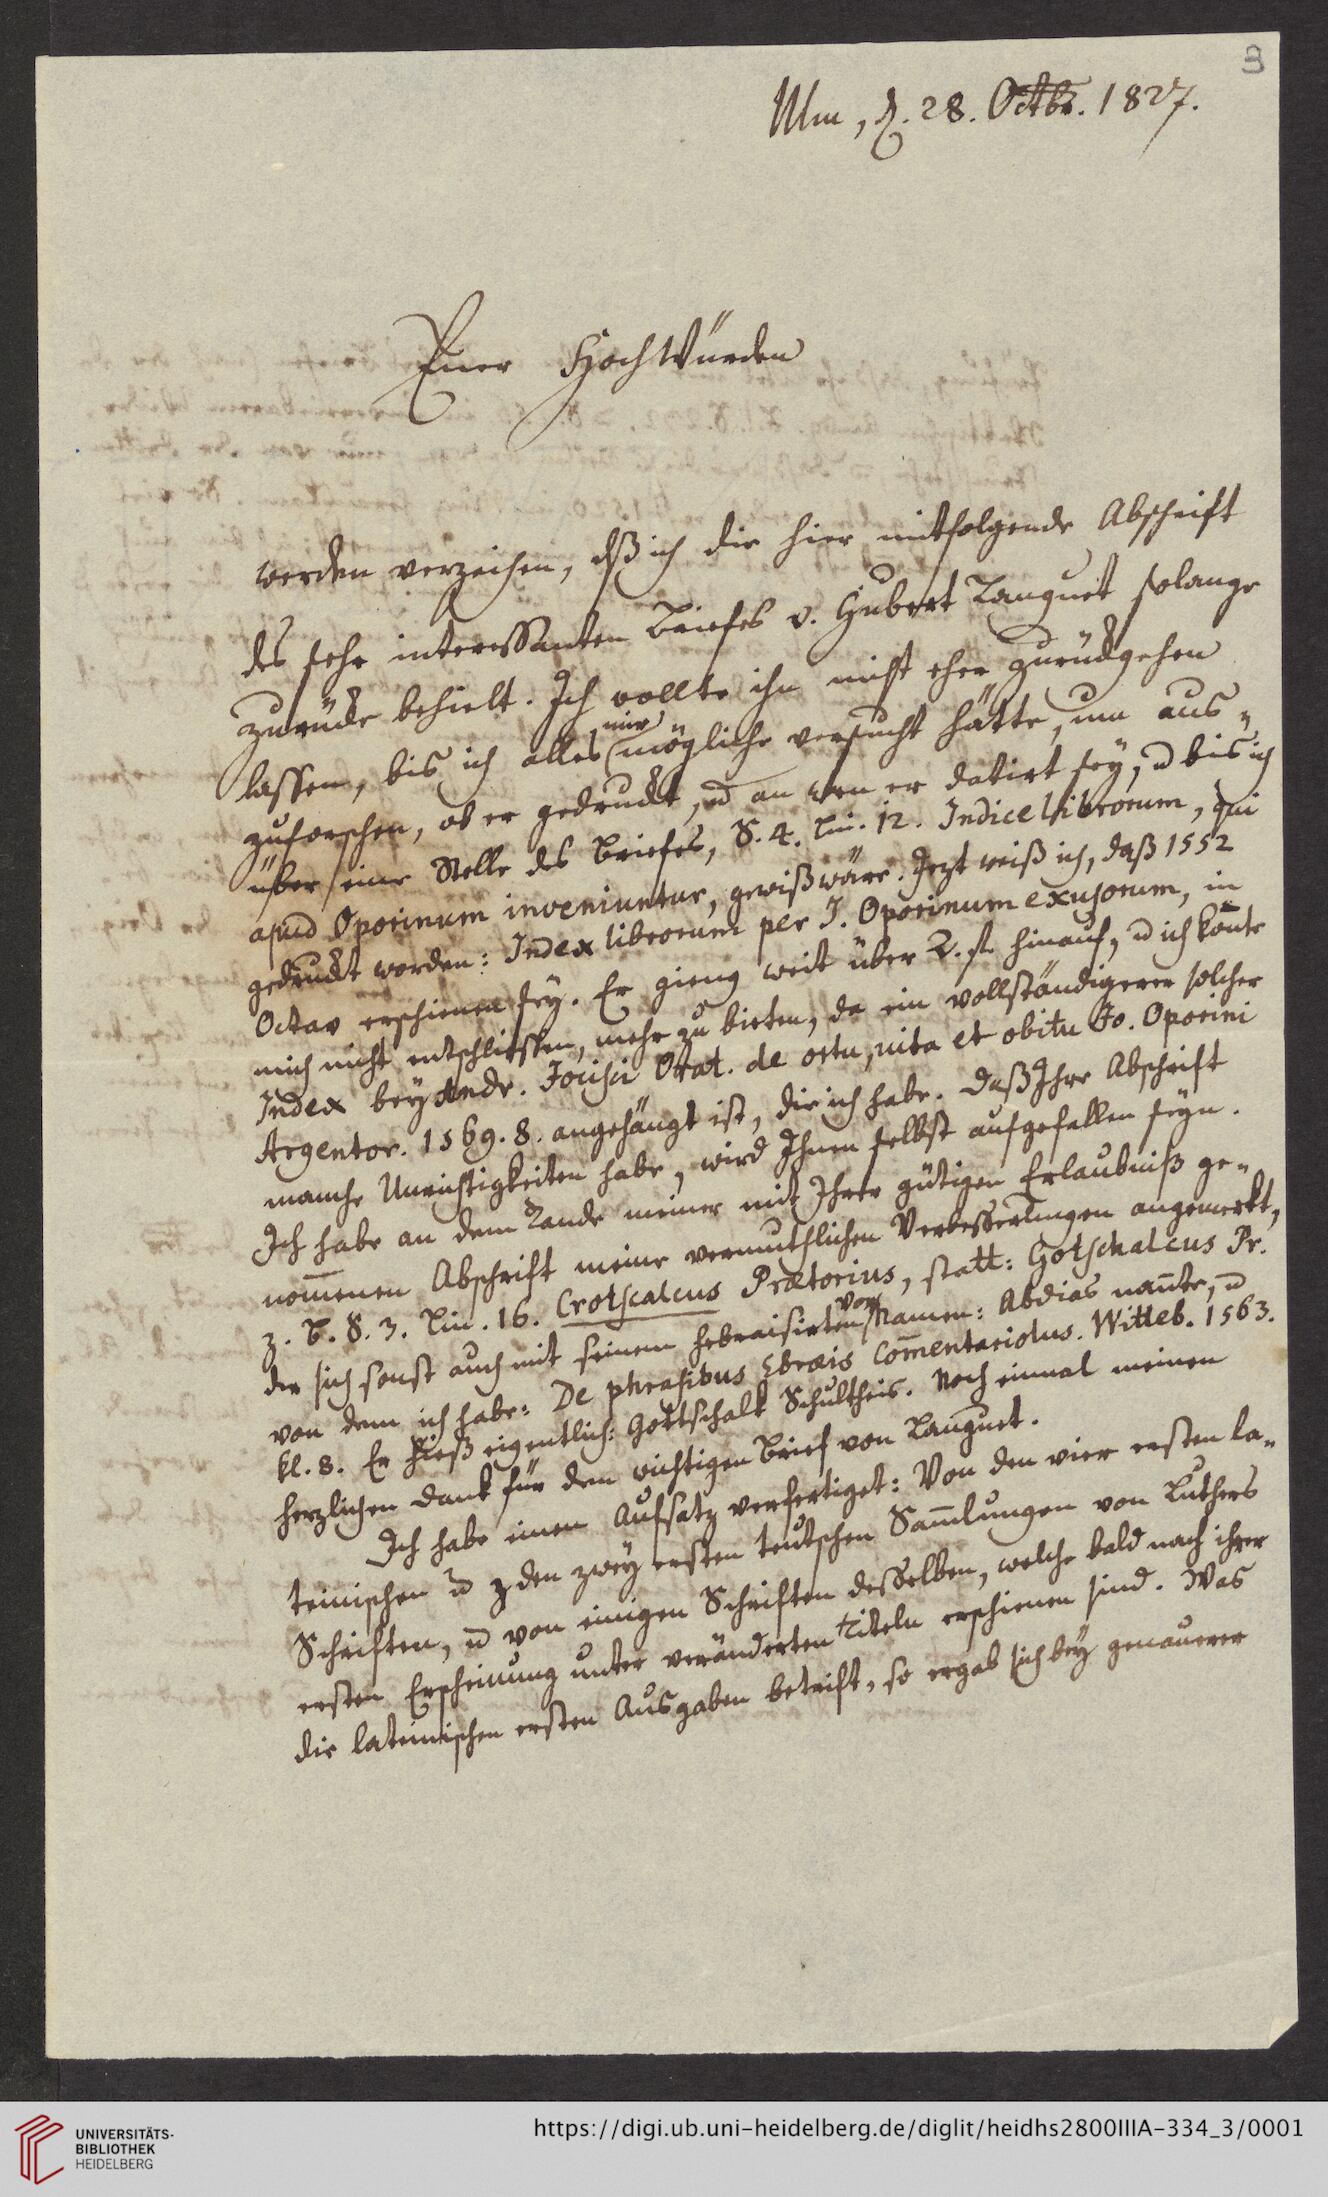 3
Ulm, d. 28. Octbr. 1827.
Euer HochWürden
werden verzeihen, dß ich die hier mitfolgende Abschrift
des sehr interessanten Briefes v. Hubert Languet solange
zurücke behielt. Ich wollte ihn nicht eher zurückgehen
lassen, bis ich alles mir mögliche versucht hätte, um aus-
zuforschen, ob er gedruckt, u an wen er datirt sey, u bis ich
über eine Stelle des Briefes, S. 4. Lin. 12. Indice librorum, qui
apud Oporinum inveniuntur, gewiß wäre. Jezt weiß ich, daß 1552
gedruckt worden: Index librorum per J. Oporinum exusorum, in
Octav erschienen sey. Er gieng weit über 2. fl. hinauf, u ich kon̄te
mich nicht entschliessen, mehr zu bieten, da ein vollständigerer solcher
Index bey Andr. Jocisci Orat. de ortu, vita et obitu Jo. Oporini
Argentor. 1569. 8. angehängt ist, die ich habe. Daß Ihre Abschrift
manche Unrichtigkeiten habe, wird Ihnen selbst aufgefallen seyn.
Ich habe an dem Rande meiner mit Ihrer gütigen Erlaubniß ge-
nom̄enen Abschrift meine vermuthlichen Verbesserungen angemerkt,
z. B. S. 3. Lin. 16. Crotscalcus Prætorius, statt: Gotschalcus Pr.
der sich sonst auch mit seinem hebraisirten Vornamen: Abdias nan̄te, u
von dem ich habe: De phrasibus Ebræis com̄entariolus. Witteb. 1563.
kl. 8. Er hieß eigentlich: Gottschalk Schultheis. Noch einmal meinen
herzlichen Dank für den wichtigen Brief von Languet.
Ich habe einen Aufsatz verfertiget: Von den vier ersten la-
teinischen u den zwey ersten teutschen Sam̄lungen von Luthers
Schriften, u von einigen Schriften desselben, welche bald nach ihrer
ersten Erscheinung unter veränderten Titeln erschienen sind. Was
die lateinischen ersten Ausgaben betrift, so ergab sich bey genauerer
UNIVERSITÄTS-
BIBLIOTHEK
HEIDELBERG
https://digi.ub.uni-heidelberg.de/diglit/heidhs2800IIIA-334_3/0001